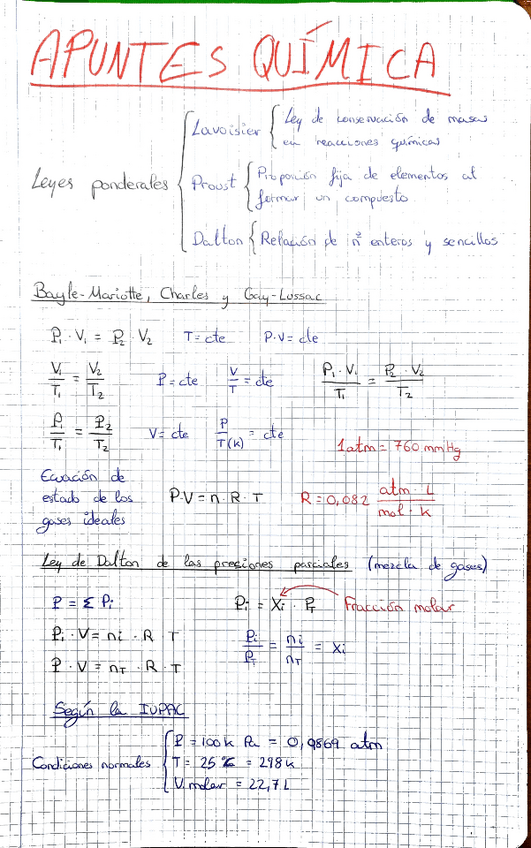 APUNTES QUÍMICA
Leyes ponderales
Lavoisier { Ley de conservación de masas
en reacciones químicas
Proust { Proporción fija de elementos al
formar un compuesto
Dalton { Relación de nº enteros y sencillos
Bayle-Mariotte, Charles y Gay-Lussac
P₁ · V₁ = P₂ · V₂ T = cte P·V = cte
V₁/T₁ = V₂/T₂ P = cte V/T = cte P₁ · V₁/T₁ = P₂ · V₂/T₂
P₁/T₁ = P₂/T₂ V = cte P/T(k) = cte
1 atm = 760 mmHg
Ecuación de
estado de los
gases ideales
P·V = n · R · T R = 0,082 atm · L/mol · k
Ley de Dalton de las presiones parciales (mezcla de gases)
P = Σ Pi Pi = Xi · PT Fracción molar
Pi · V = ni · R T Pi/PT = ni/nT = Xi
P · V = nT · R · T
Según la IUPAC
Condiciones normales
P = 100 k Pa = 0,9869 atm
T = 25 ℃ = 298 k
V. molar = 22,7 L